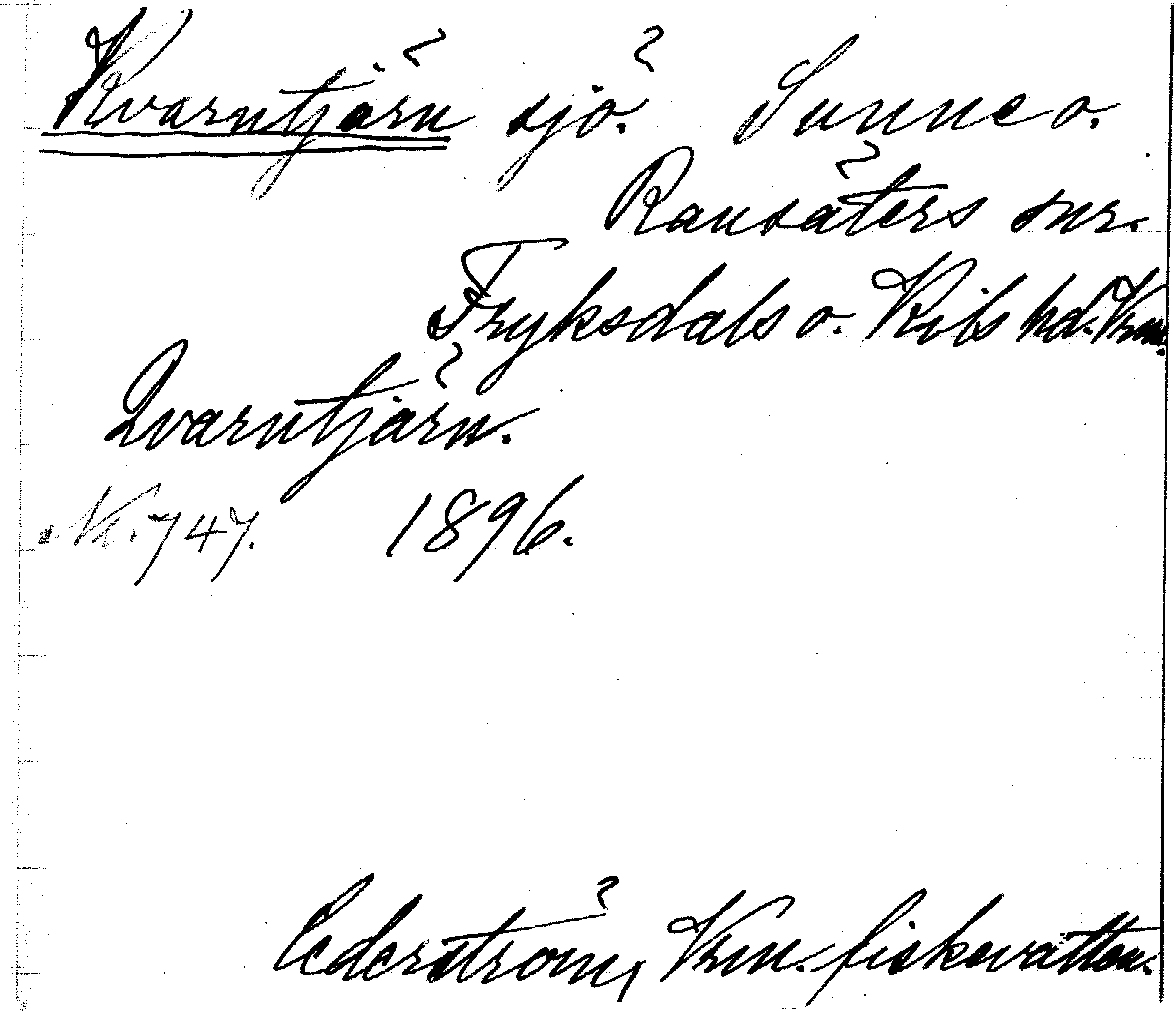 Kvarntjärn sjö. Sunne o.
Ransäters snr.
Fryksdals o. Kils hd. Vrm.
Qvarntjärn.
Nr. 747. 1896.
Cederström, Vrm. fiskevatten.